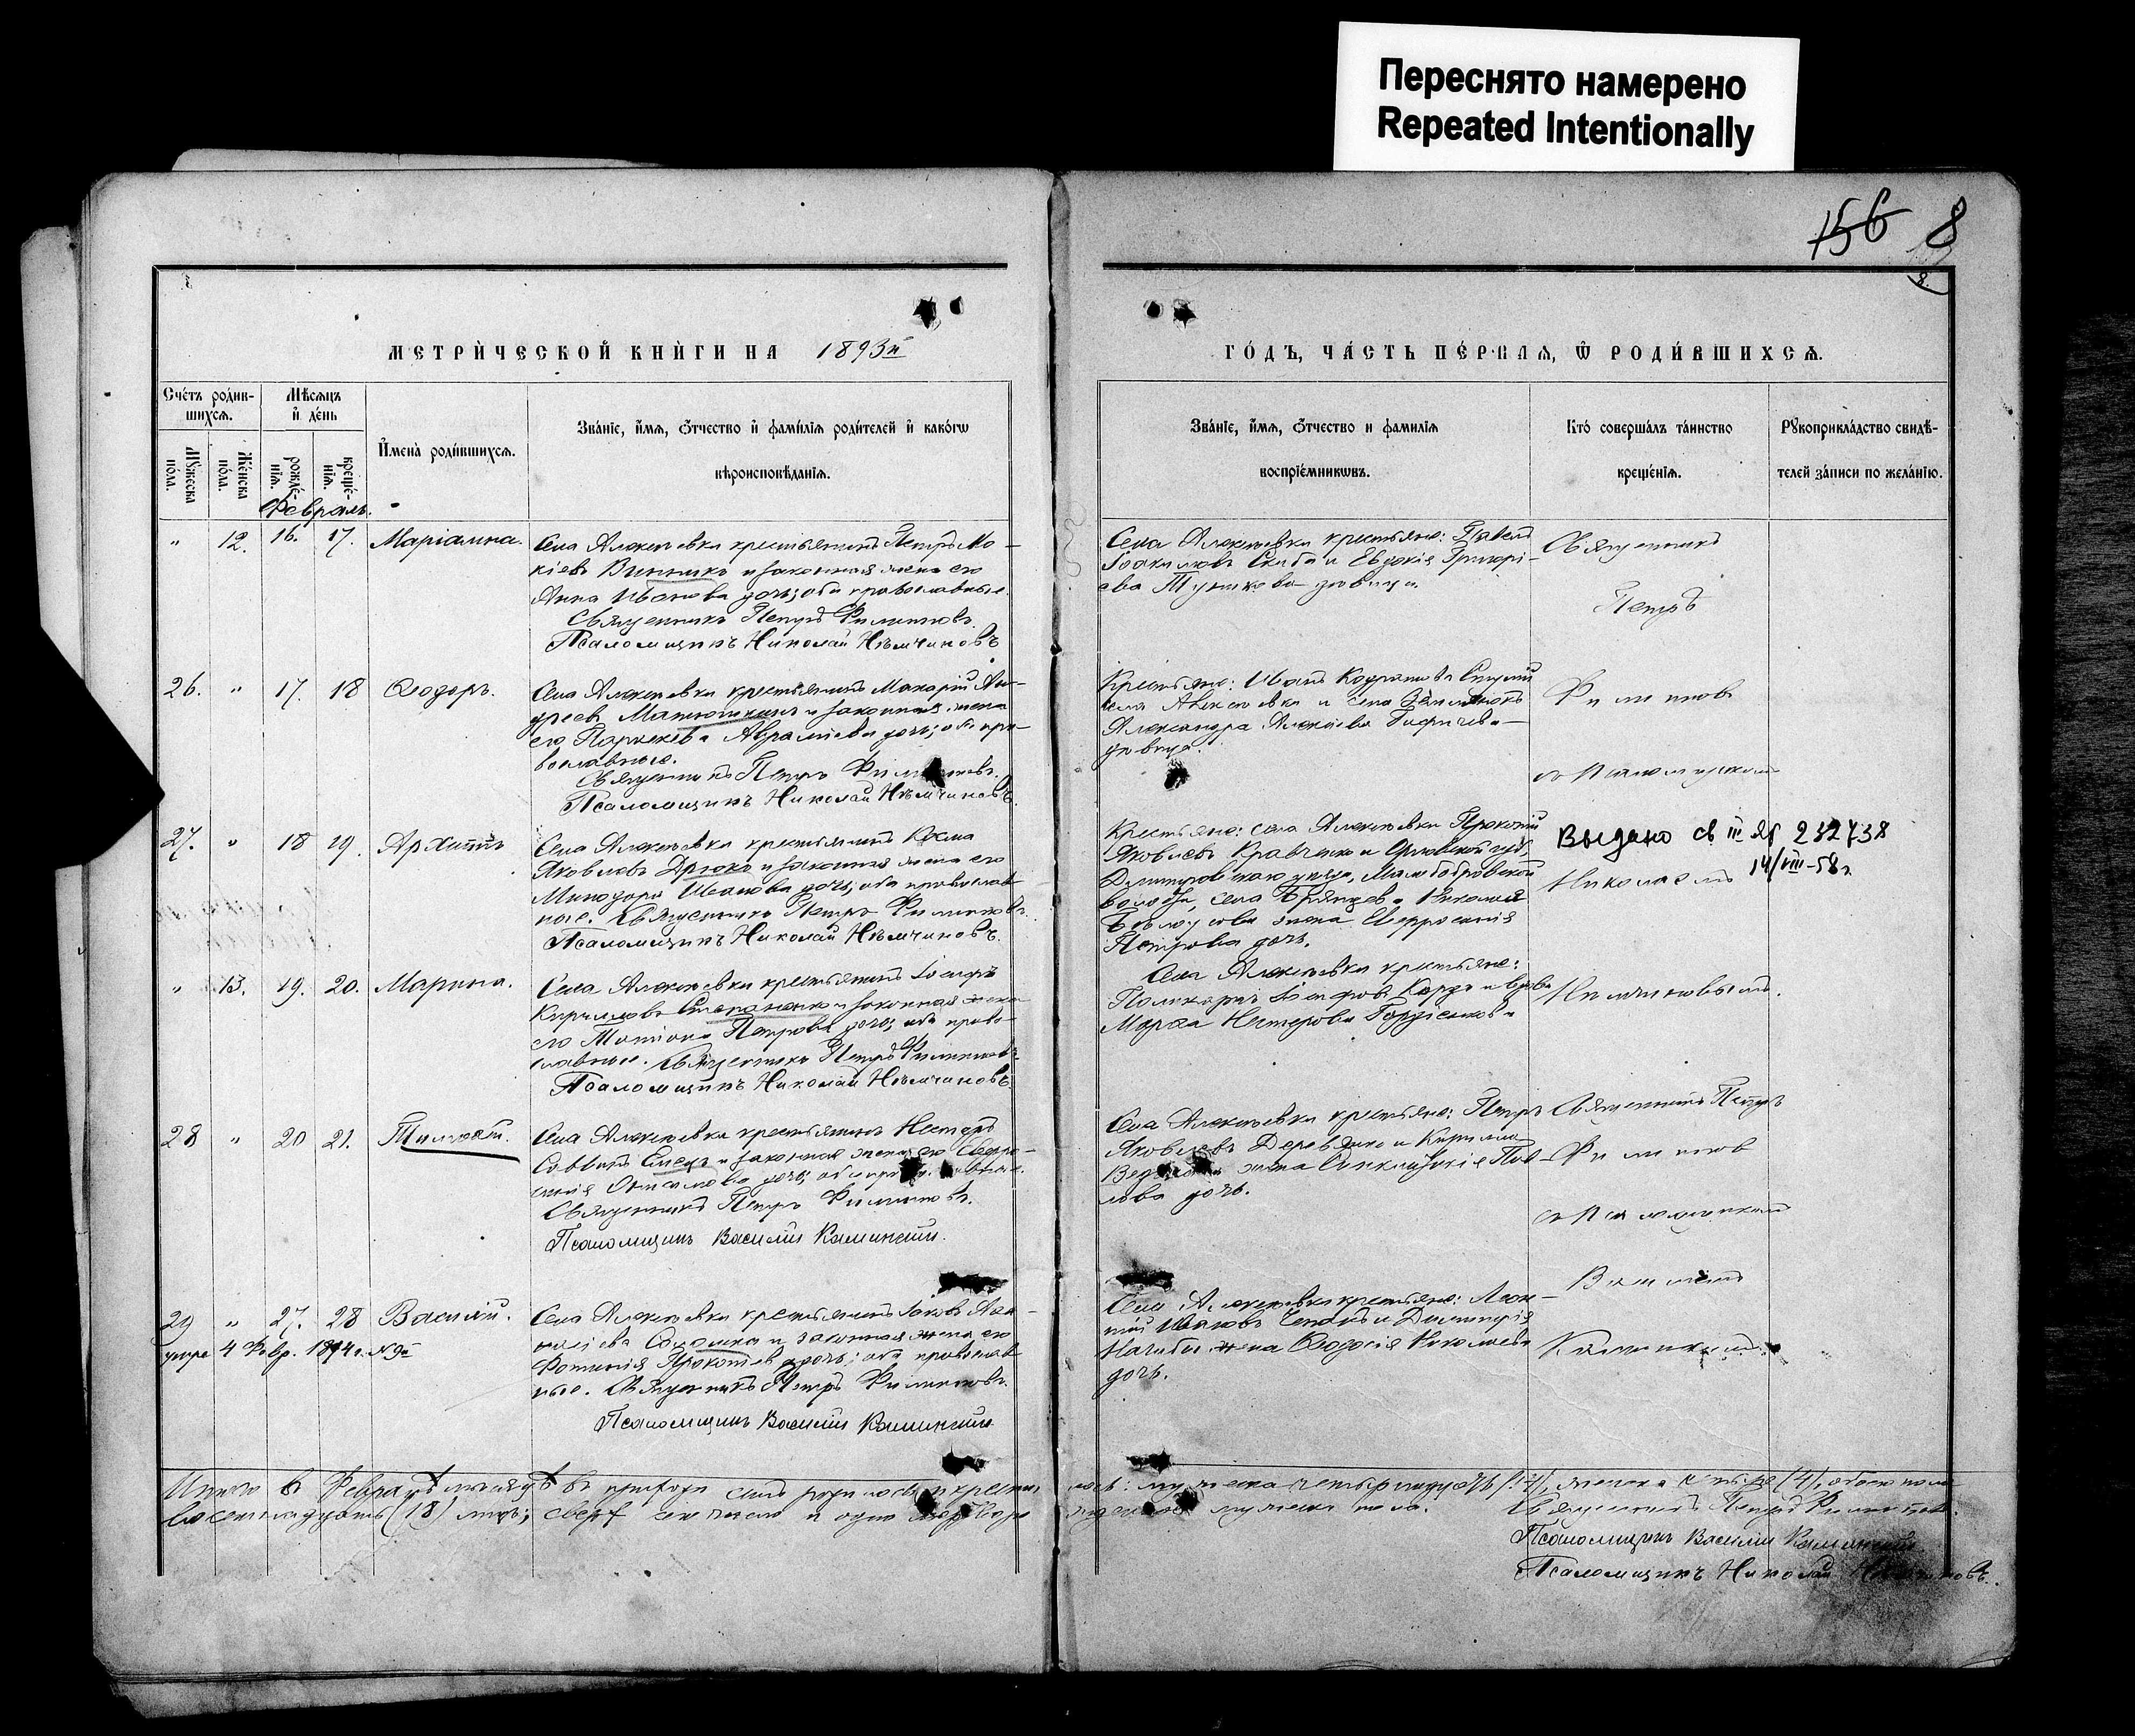 Переснято намерено
Repeated Intentionally
156 8
8.
МЕТРИ́ЧЕСКОЙ КНИ́ГИ НА 1893й
ГО́ДЪ, ЧА́СТЬ ПЕ́РВАЯ, Ѿ РОДИ́ВШИХСЯ.
Сче́тъ роди́в-
шихся.
Мѣ́сяцъ
и҆ де́нь
Мꙋ́жеска
по́ла.
Же́нска
по́ла.
рожде́-
нїя.
креще́-
нїя.
И҆мена̀ роди́вшихся.
Зва́нїе, и҆́мя, ѻ҆́тчество и҆ фамі́лїя роди́телей и҆ како́гѡ
вѣроисповѣ́данїя.
Зва́нїе, и҆́мя, ѻ҆́тчество и фамилїя
воспрїе́мникѡвъ.
Кто́ соверша́лъ та́инство
креще́нїя.
Рꙋкоприкла́дство свидѣ́-
телей за́писи по жела́нїю.
Февраль.
" 12. 16. 17. Маріамна.
Села Алексѣевки крестьянинъ Петръ Мо-
кіевъ Винникъ и законная жена его
Анна Иванова дочь; оба православные.
Священникъ Петръ Филипповъ.
Псаломщикъ Николай Нѣмчиновъ
Села Алексѣевки крестьяне: Павелъ
Іоакимовъ Скиба и Евдокія Григорі-
ева девица
Священникъ
Петръ
26. " 17. 18 Ѳеодоръ.
Села Алексѣевки крестьянинъ Макарій Ан-
дреевъ Матюшкинъ и законная жена
его Параскева Авраміева дочь; оба пра-
вославные.
Священникъ Петръ Филипповъ.
Псаломщикъ Николай Нѣмчиновъ.
Крестьяне: Иванъ Кодратовъ
села Алексѣевки и села
Александра Алексѣева
девица.
Филипповъ
съ Псаломщикомъ
27. " 18 19. Архиппъ
Села Алексѣевки крестьянинъ Косма
Яковлевъ Дрюкъ и законная жена его
Минодора Иванова дочь; оба православ
ные. Священникъ Петръ Филипповъ.
Псаломщикъ Николай Нѣмчиновъ.
Крестьяне: села Алексѣевки Прокопій
Яковлевъ Кравченко и Орловской губ.,
Дмитровскаго уезда, Малобобровской
волости, села Николая
жена Евфросинія
Петрова дочь.
Выдано св III ЯГ 232738
14/VIII-58г
Николаемъ
" 13. 19. 20. Марина.
Села Алексѣевки крестьянинъ Іосифъ
Кирилловъ Степаненко и законная жена
его Татіана Петрова дочь; оба право-
славные. Священникъ Петръ Филипповъ.
Псаломщикъ Николай Нѣмчиновъ.
Села Алексѣевки крестьяне:
Поликарпъ Іосифовъ и вдова
Марѳа Нестерова Гордіенкова
Нѣмчиновымъ.
28 " 20 21. Тимоѳей.
Села Алексѣевки крестьянинъ Несторъ
Саввинъ и законная жена его Евфро-
синія дочь; оба православные.
Священникъ Петръ Филипповъ.
Псаломщикъ Василій Калинскій.
Села Алексѣевки крестьяне: Петръ
Яковлевъ Деревянко и Кирилла
жена Синклитикія Пав-
лова дочь.
Священникъ Петръ
Филиппов
съ Псаломщикомъ
29 " 27. 28 Василій.
умре 4 Февр. 1894г. №9й
Села Алексѣевки крестьянинъ Іаковъ Ана-
ніева и законная жена его
Фотинія Прокопіева дочь; оба православ
ные. Священникъ Петръ Филипповъ.
Псаломщикъ Василій Калинскій
Села Алексѣевки крестьяне: Леон-
тій Ивановъ и Димитрія
жена Ѳеодосія Николаева
дочь.
Василіемъ
Калинскимъ.
Итого въ Февралѣ мѣсяцѣ въ приходѣ семъ родилось и крести лось: мужеска четырнадцать (14), женска четыре (4), обоего пола
восемнадцать (18) лицъ; сверхъ сего числа и одно мертворо жденное мужеска пола. Священникъ Петръ Филипповъ.
Псаломщикъ Василій Калинскій
Псаломщикъ Николай Нѣмчиновъ.